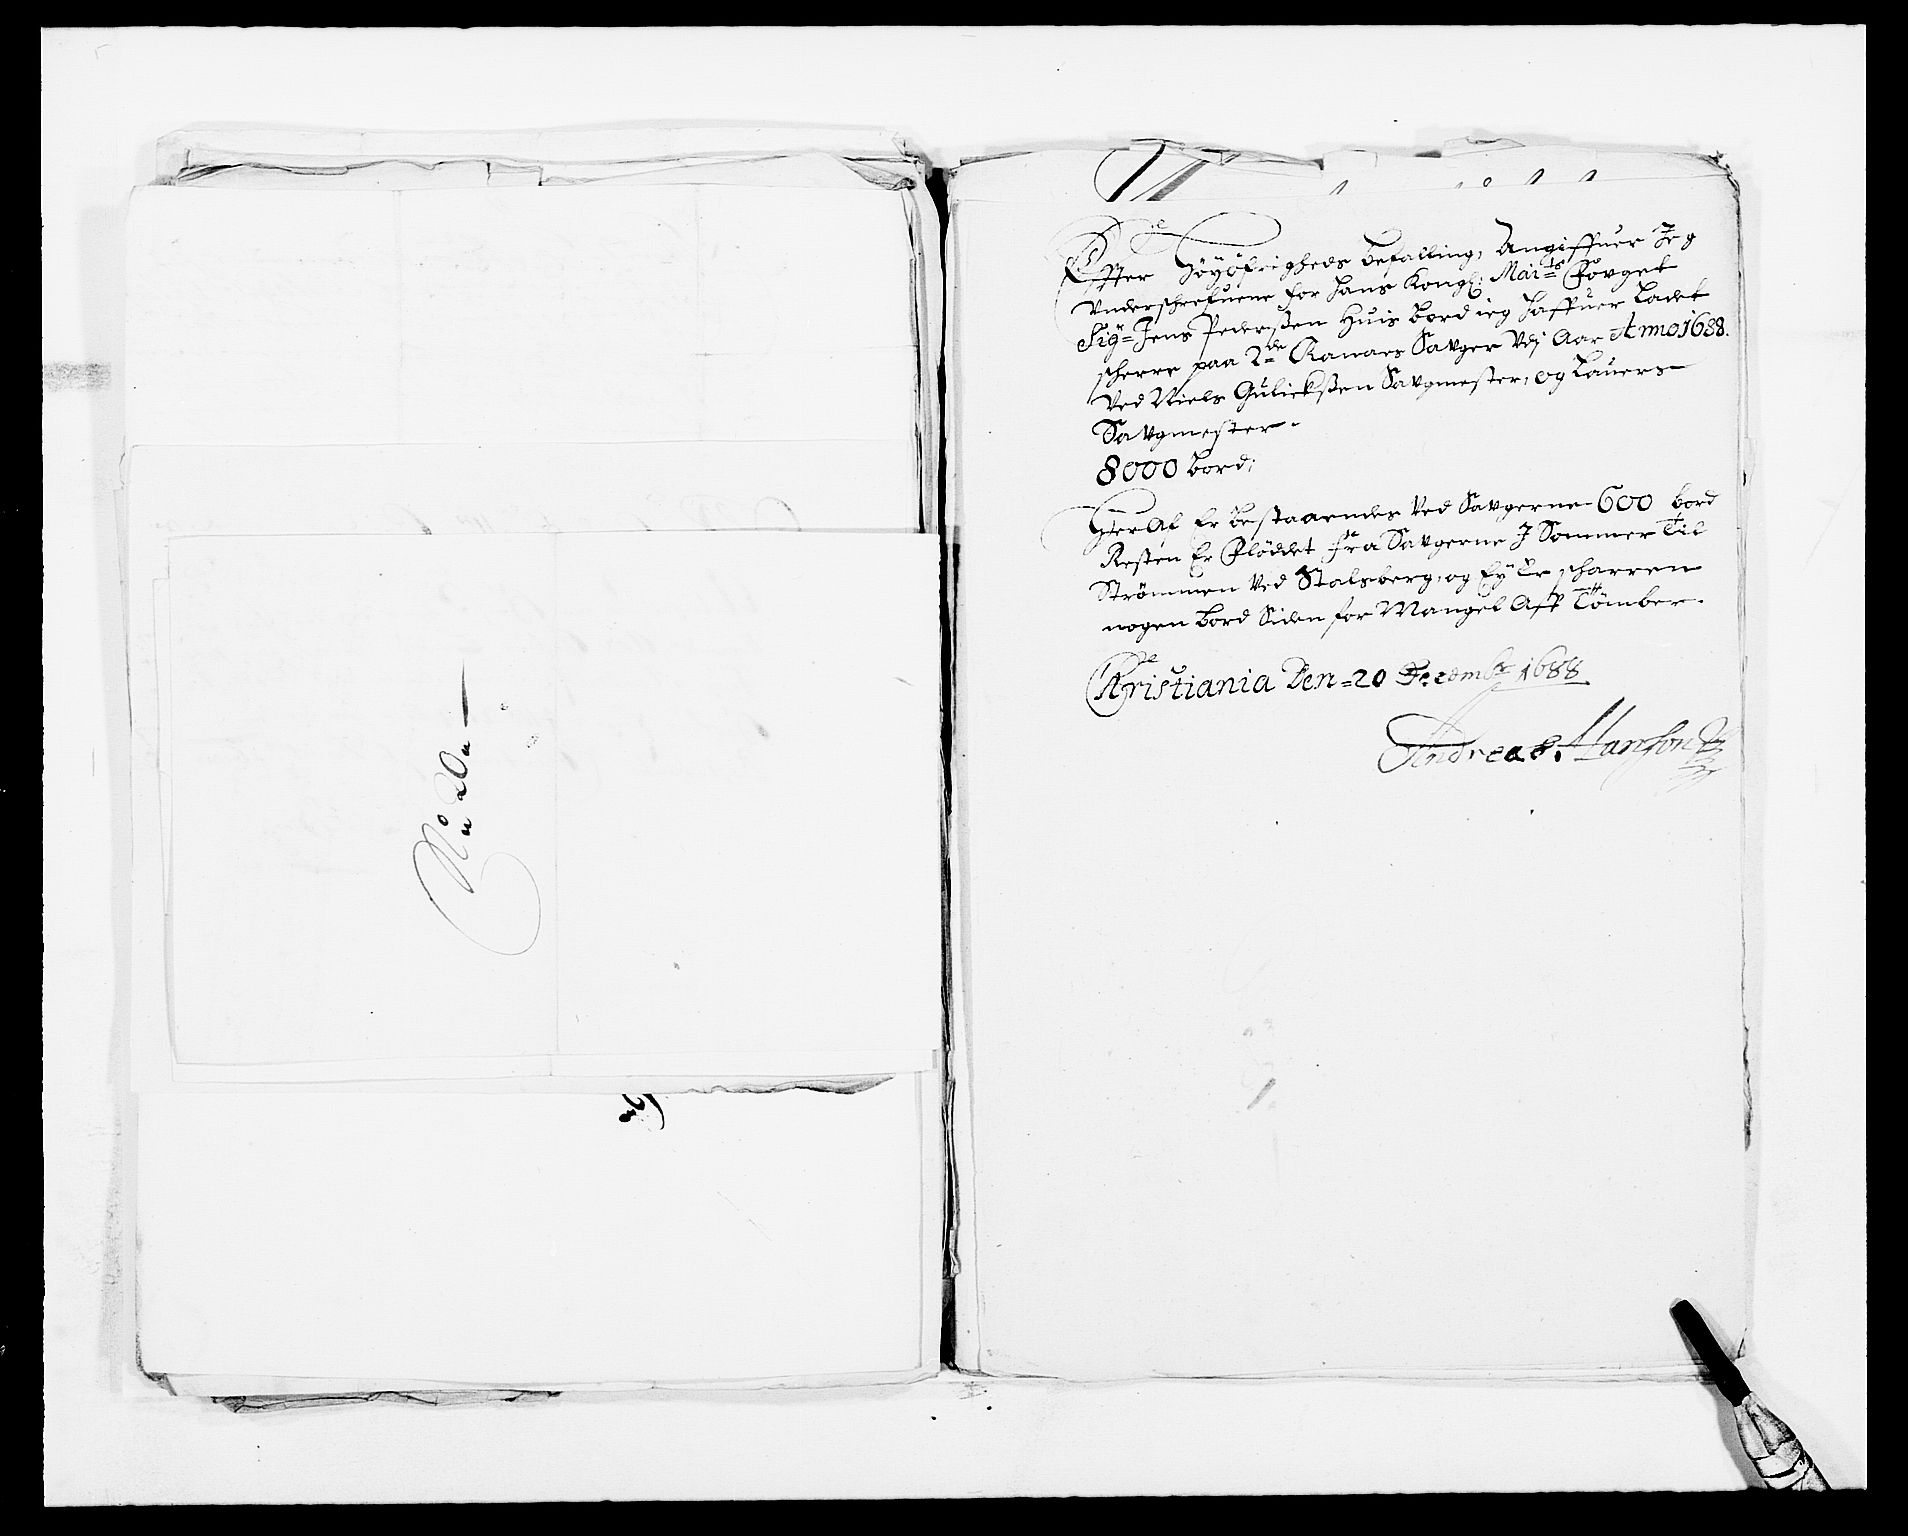 No 20
Effter Höyöfrigheds befalling, Angiffuer Jeg
Vnderschrefuene for Hans Kongl: Maits Fovget
Sigr Jens Pederssen Huis bord ieg Haffuer Ladet
scherre paa 2de Ranaes Savger Vdj Aar Anno 1688.
Ved Niels Gulickssen Savgmester, og Lauers
Savgmester.
8000 bord;
Her Af Er bestaaendes Ved Savgerne 600 bord
Resten Er Fløddet fra Savgerne J Sommer Til
Strömmen Ved Stalsberg, og Ey Er scharren
nogen bord Siden for Mangel Aff Tömber.
Christiania Den 20 Decembr 1688
Andreas Hansson